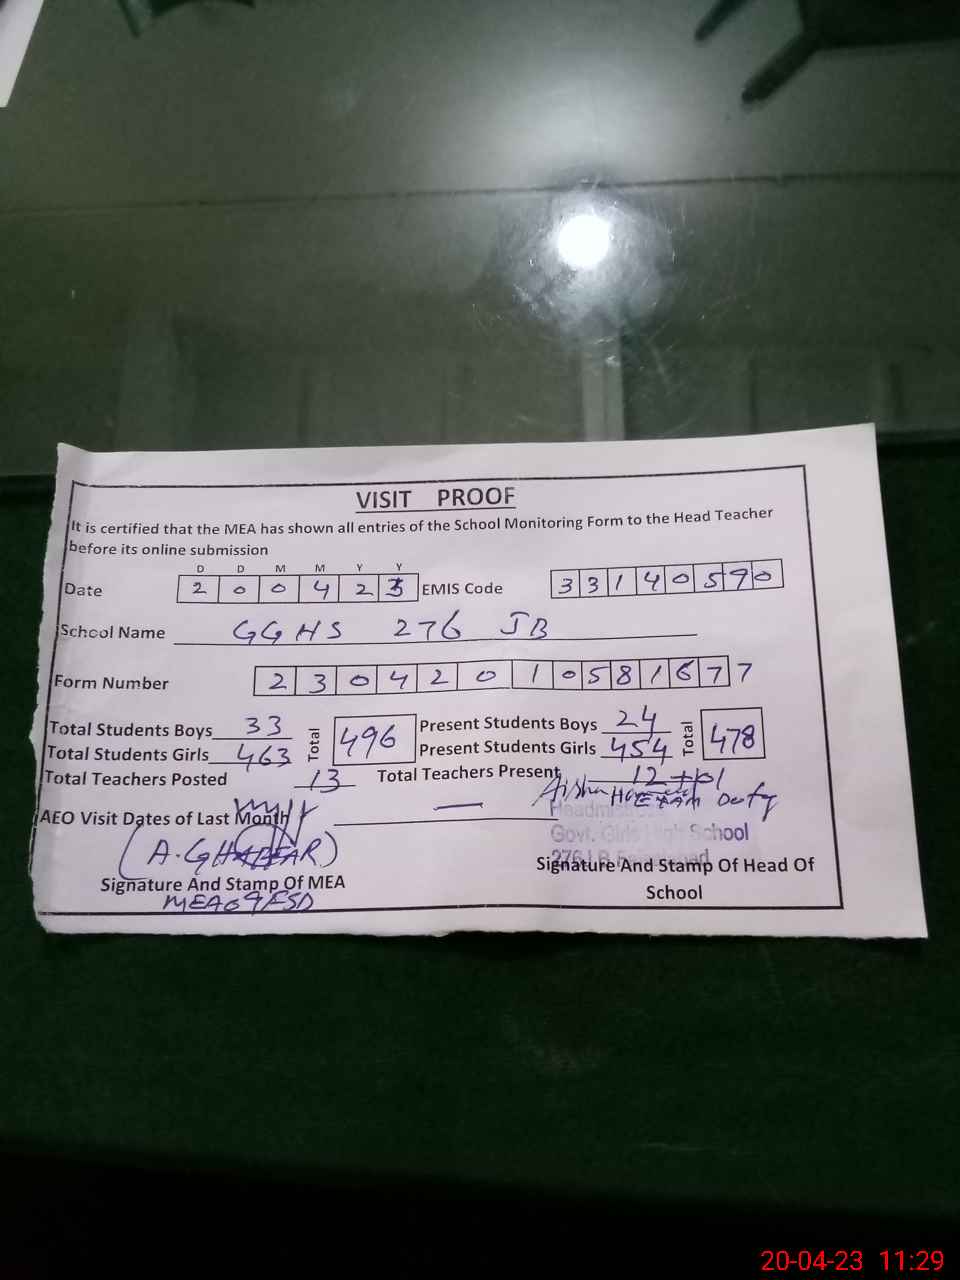 VISIT PROOF
It is certified that the MEA has shown all entries of the School Monitoring Form to the Head Teacher
before its online submission
D D M M Y Y
Date 2 0 0 4 2 3 EMIS Code 3 3 1 4 0 5 9 0
School Name GGHS 276 JB
Form Number 2 3 0 4 2 0 1 0 5 8 1 6 7 7
Total Students Boys 33 Total 496 Present Students Boys 24 Total 478
Total Students Girls 463 Present Students Girls 454
Total Teachers Posted 13 Total Teachers Present 12 + 01
Aisha EXAM Duty
AEO Visit Dates of Last Month —
Headmistress
Govt. Girls High School
276 J.B Faisalabad
(A. GHAFFAR)
Signature And Stamp Of MEA
MEA 09 FSD
Signature And Stamp Of Head Of
School
20-04-23 11:29